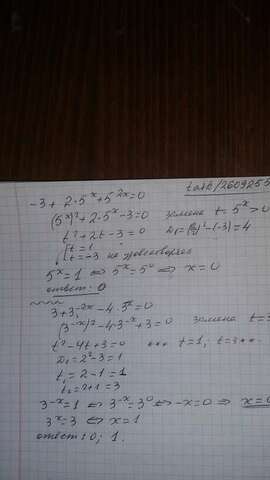 task/2609255
-3 + 2·5^x + 5^2x = 0
(5^x)² + 2·5^x - 3 = 0 замена t = 5^x > 0
t² + 2t - 3 = 0 D₁ = (2/2)² - (-3) = 4
[ t = 1
t = -3 не удовлетворяет
5^x = 1 ⇔ 5^x = 5^0 ⇔ x = 0
ответ: 0
3 + 3^-2x - 4·3^-x = 0
(3^-x)² - 4·3^-x + 3 = 0 замена t =
t² - 4t + 3 = 0 t = 1; t = 3
D₁ = 2² - 3 = 1
t₁ = 2 - 1 = 1
t₂ = 2 + 1 = 3
3^-x = 1 ⇔ 3^-x = 3^0 ⇔ -x = 0 ⇒ x = 0
3^x = 3 ⇔ x = 1
ответ: 0; 1.